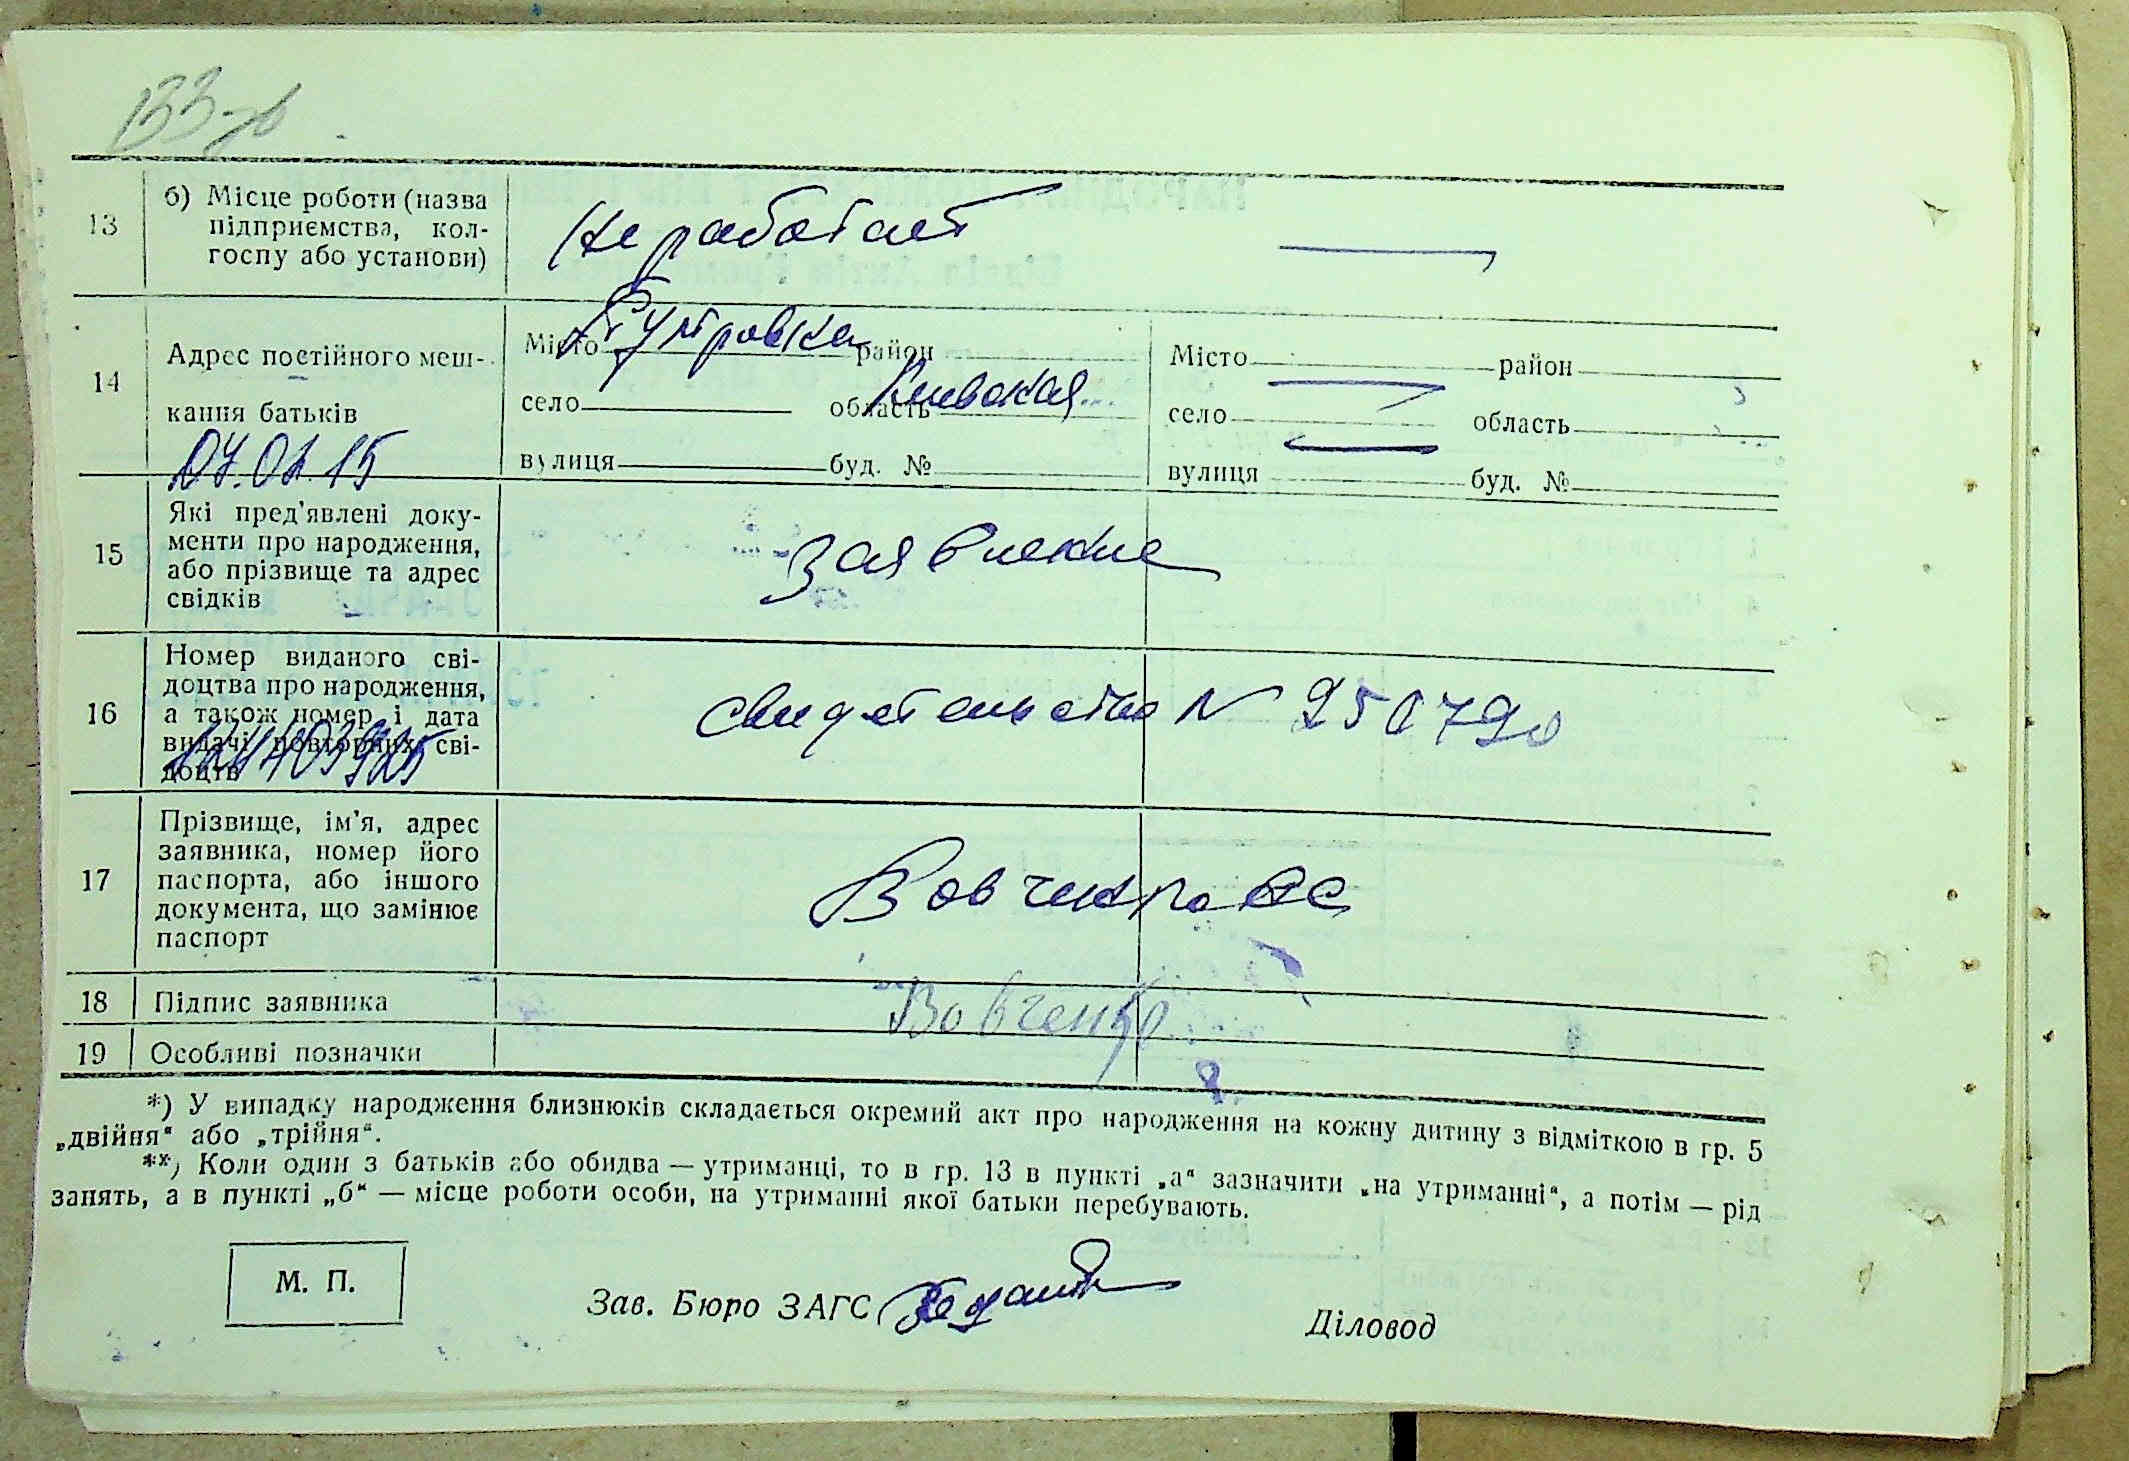 133-зв
13
б) Місце роботи (назва
підприємства, кол-
госпу або установи)
Не работает
14
Адрес постійного меш-
кання батьків
Місто район
село область Киевская
вулиця буд. №
Місто район
село область
вулиця буд. №
07.01.15
15
Які пред'явлені доку-
менти про народження,
або прізвище та адрес
свідків
Заявление
16
Номер виданого сві-
доцтва про народження,
а також номер і дата
видачі повторних сві-
доцтв
свидетельство N
17
Прізвище, ім'я, адрес
заявника, номер його
паспорта, або іншого
документа, що замінює
паспорт
18
Підпис заявника
Вовченко
19
Особливі позначки
*) У випадку народження близнюків складається окремий акт про народження на кожну дитину з відміткою в гр. 5
„двійня“ або „трійня“.
**) Коли один з батьків або обидва — утриманці, то в гр. 13 в пункті „а“ зазначити „на утриманні“, а потім — рід
занять, а в пункті „б“ — місце роботи особи, на утриманні якої батьки перебувають.
М. П.
Зав. Бюро ЗАГС
Діловод